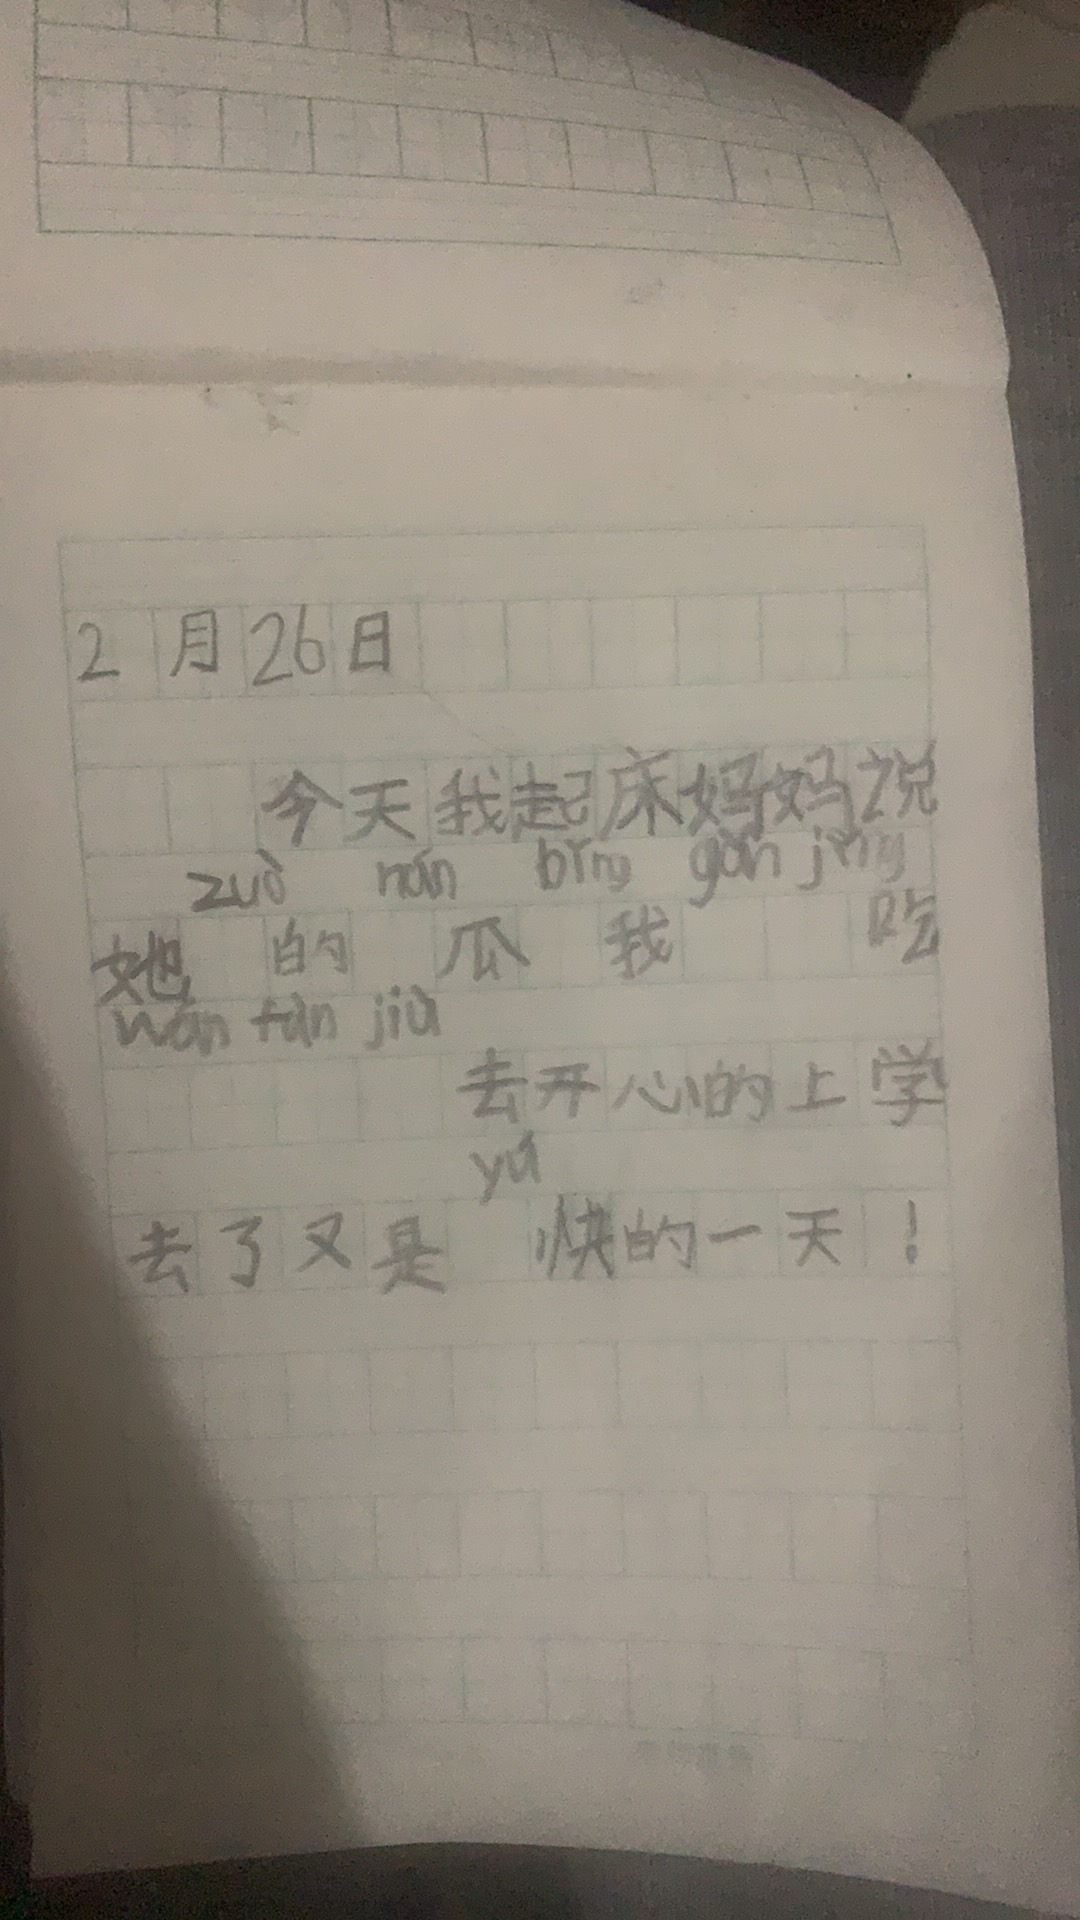 2月26日
今天我起床妈妈说
zuò nán bǐng gǎn jǐng
她 的 瓜 我 吃
wán tàn jiù
去开心的上学
yú
去了又是 快的一天！